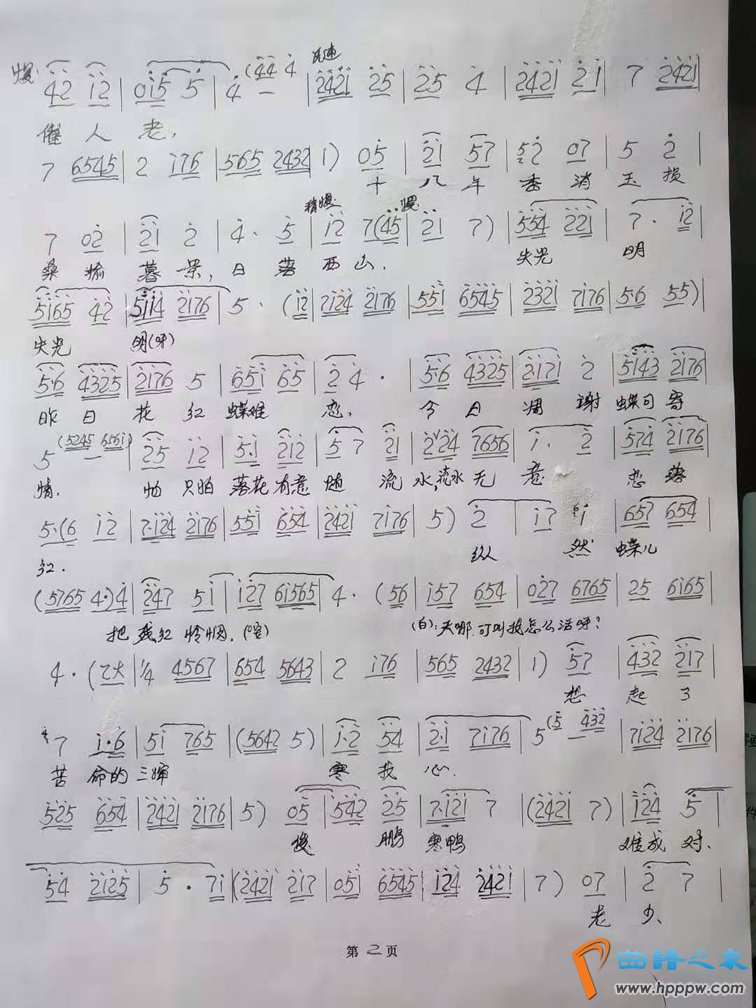 慢 4 2 1 2 | 0 1 5 5 | 4 (4 4 4 — | 2421 25 | 25 4 | 2421 21 | 7 2421
催 人 老,
7 6545 | 2 176 | 565 2432 | 1) 05 | 21 57 | 52 07 | 5 2
十 八 年 香 消 玉 损
稍慢 慢
7 02 | 21 2 | 4· 5 | 12 7(45 | 21 7) | 554 221 | 7· 12
桑 榆 暮 景, 日 落 西 山. 失光 明
5165 42 | 5114 2176 | 5· (12 | 7124 2176 | 551 6545 | 2321 7176 | 5·6 55)
失光 明(呀)
5·6 4325 | 2176 5 | 651 65 | 2 4· | 5·6 4325 | 2171 2 | 5143 2176
昨 日 花 红 蝶难 恋. 今 日 凋 谢 蝶可 寄
5 (5245 6561) — | 25 12 | 5·1 212 | 5 7 21 | 2 24 7656 | 1· 2 | 574 2176
情. 怕 只怕 落花 有意 随 流 水, 流水 无 意 恋 落
5·(6 12 | 7·124 2176 | 551 654 | 2421 7176 | 5) 2 | 17 1 | 657 654
红. 纵 然 蝶儿
(5765 4·) 4 | 247 51 | 127 61565 | 4· (56 | 157 654 | 027 6765 | 25 6165
把 残红 怜悯. (白): 天哪 可叫我怎么活呀?
4· (7大 | 1/4 4567 | 654 5643 | 2 176 | 565 2432 | 1) 57 | 432 217
想 起 了
7 1·6 | 51 765 | (5642 5) | 1·2 54 | 2·1 7176 | 5 (5 432 — | 7124 2176
苦 命的 三婶 寒 我 心.
525 654 | 2421 2176 | 5) 05 | 542 25 | 7·121 7 | (2421 7) | 124 5
鹏 寒鸭 难成 对.
54 2125 | 5· 71 | (2421 217 | 051 6545 | 124 2421 | 7) 07 | 2 7
老 少、
第 2 页
曲谱之家
www.hpppw.com